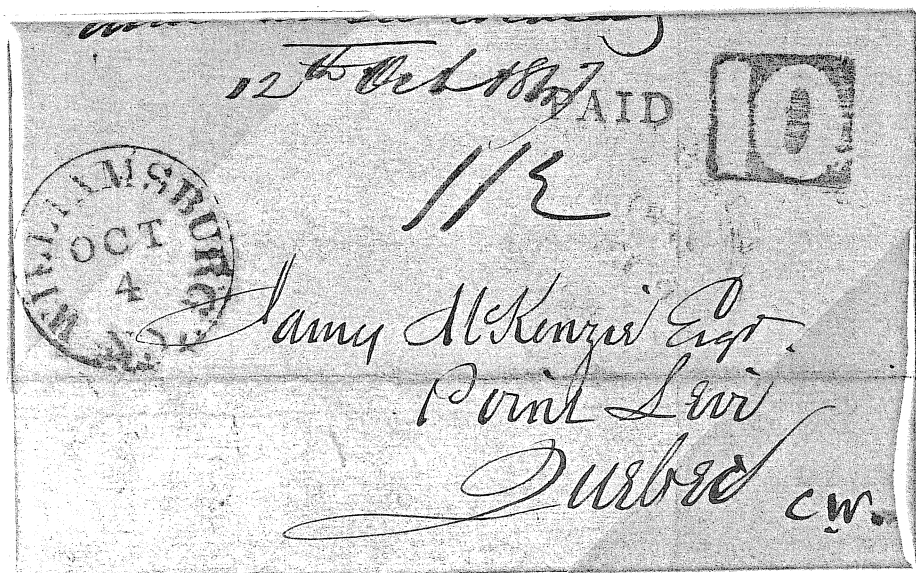 12th Oct 1847
PAID
10
1/2
WILLIAMSBURG
OCT
4
James McKenzie Esqr.
Point Levi
Quebec
C.W.